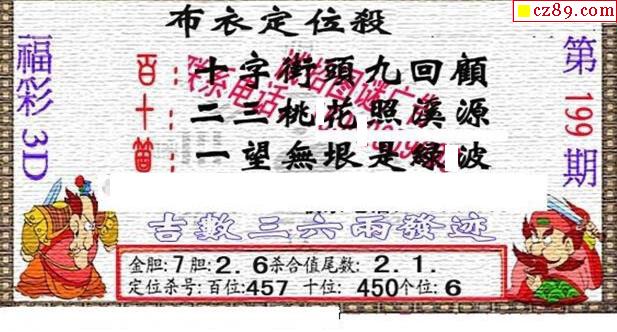 cz89.com
布衣定位殺
福彩3D
第199期
百: 十字街頭九回顧
十: 二三桃花照溪源
箇: 一望無垠是綠波
吉數三六兩發迹
金胆:7胆:2.6杀合值尾数:2.1.
定位杀号:百位:457 十位: 450个位:6